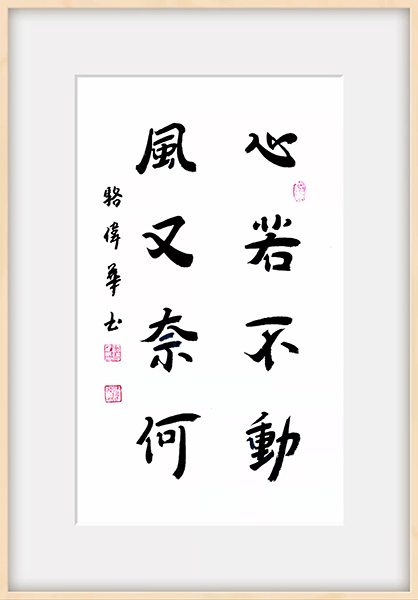 心若不動
風又奈何
駱偉華书